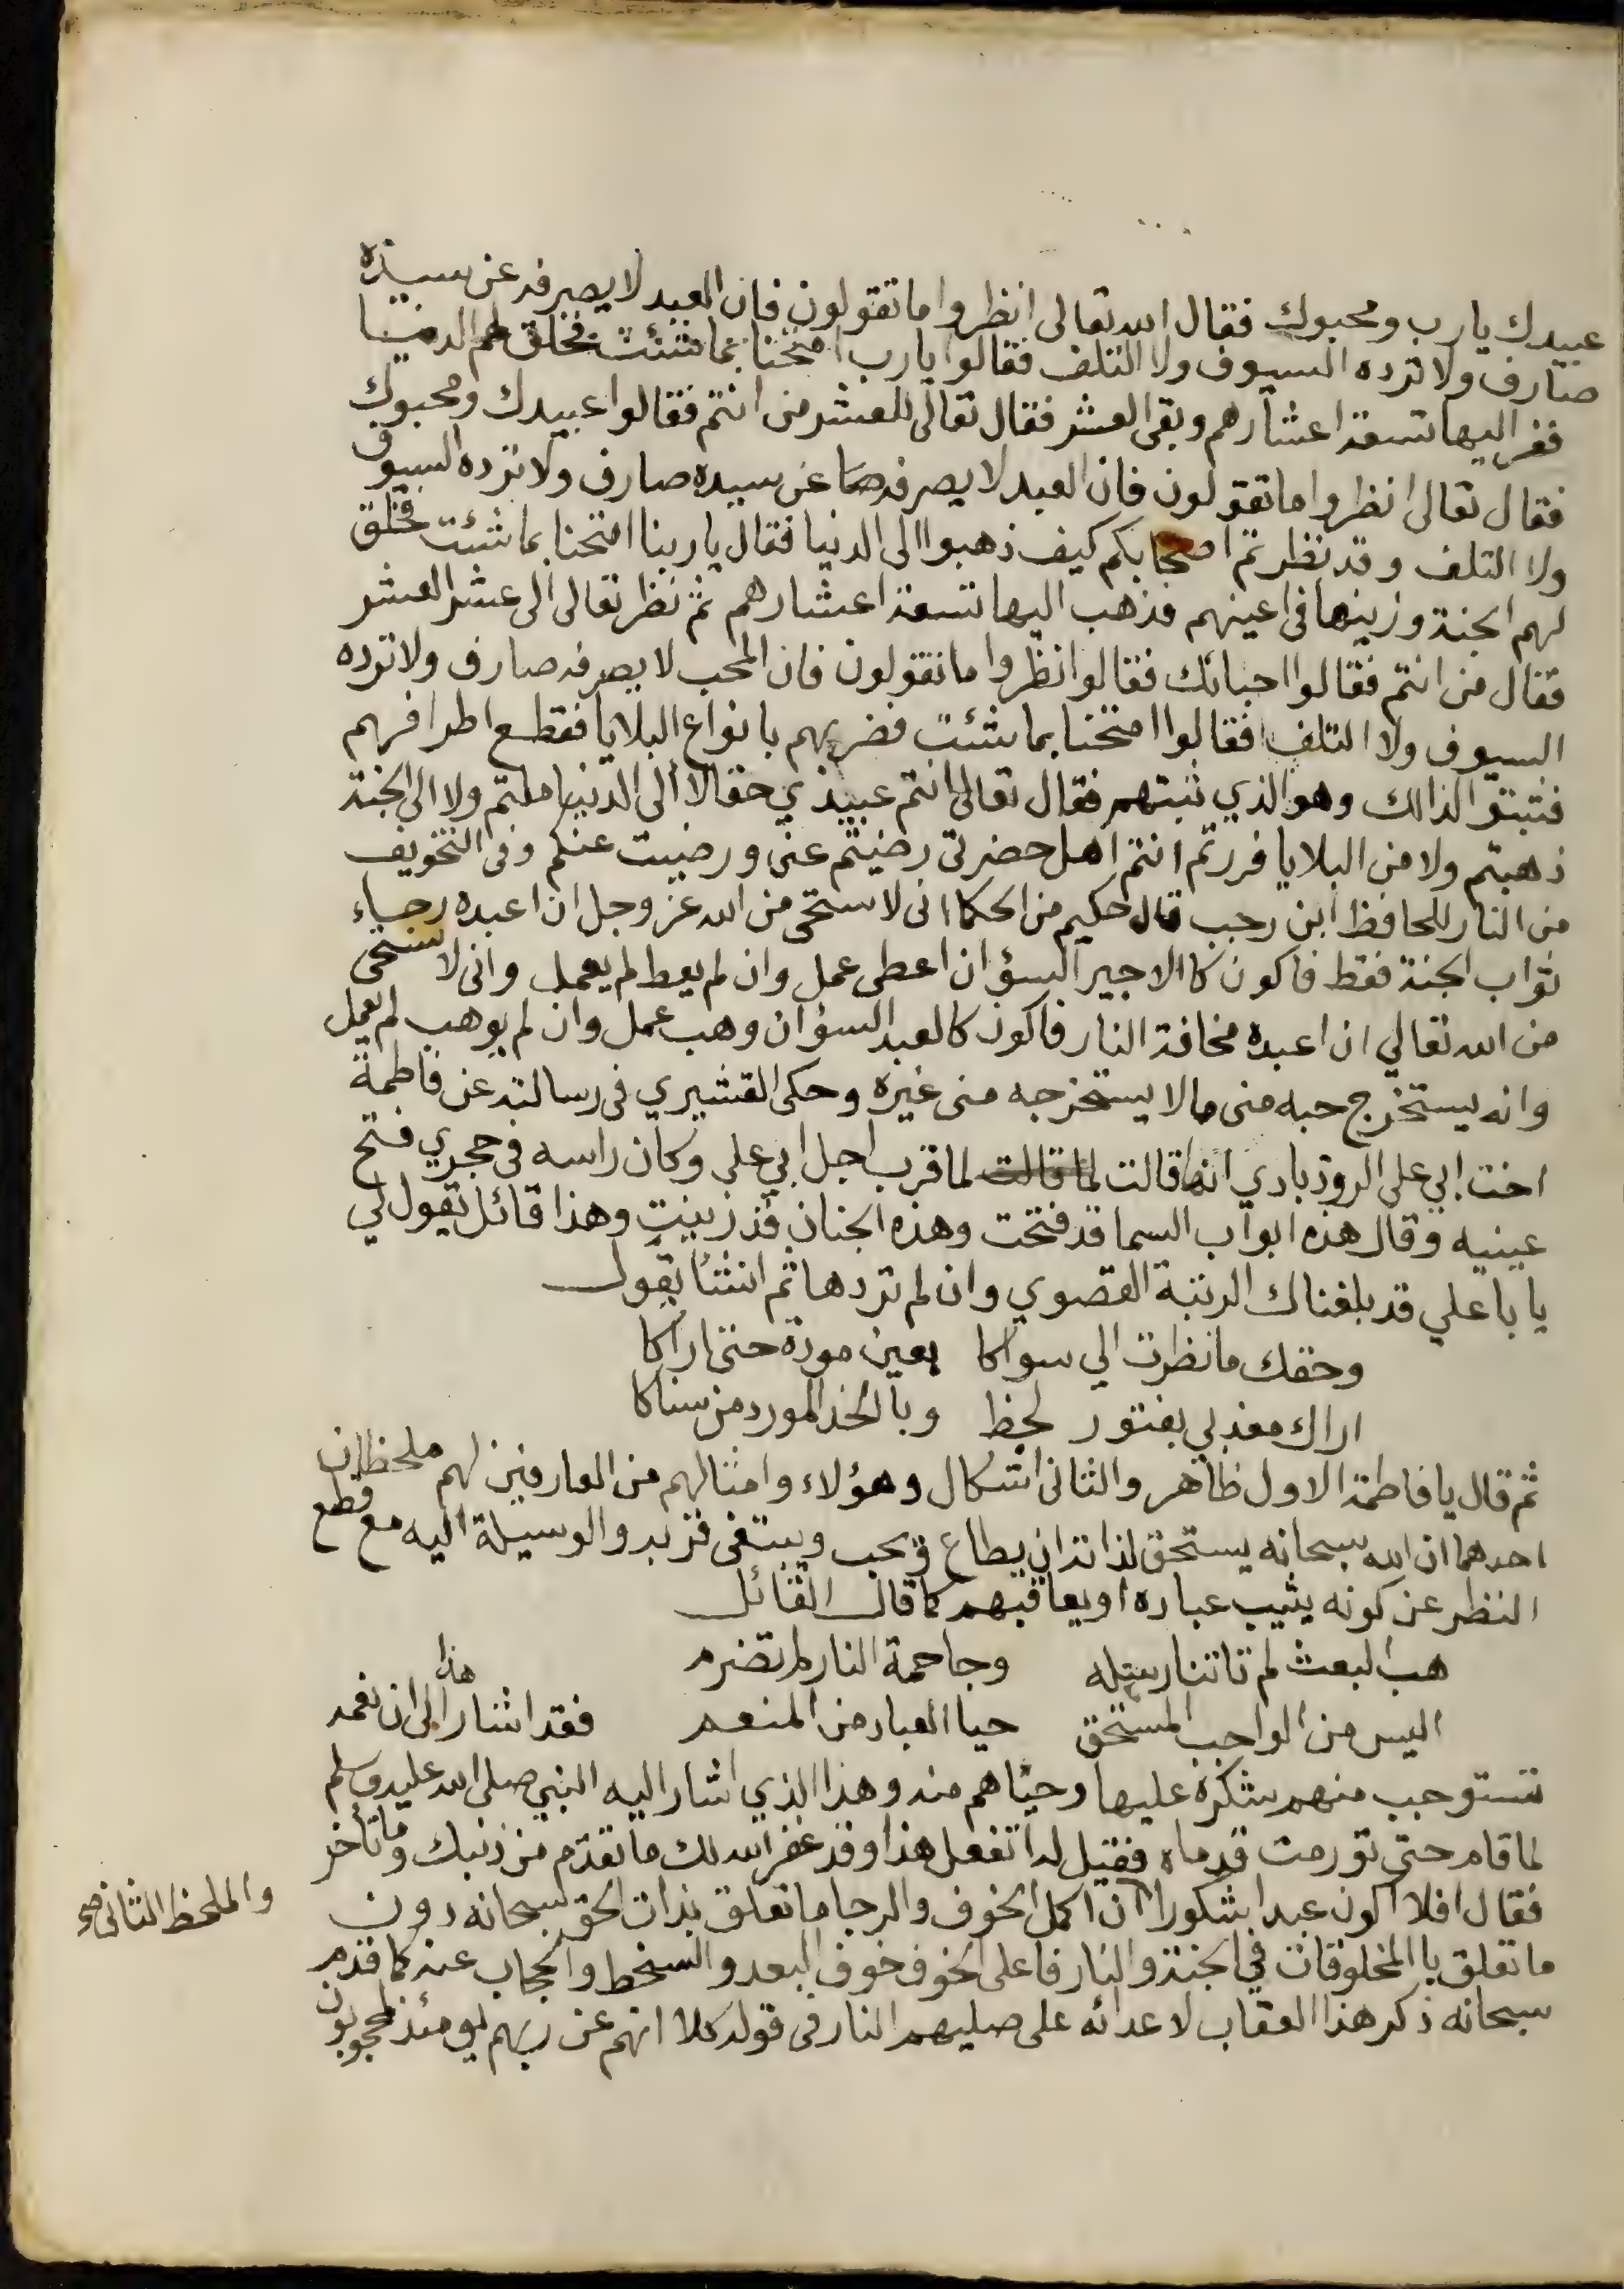 عبيدك يارب ومحبوك فقال الله تعالى انظروا ما تقولون فان العبد لا يصرفه عن سيده
صارف ولا ترده السيوف ولا التلف فقالوا يارب امتحنا بما شئت فخلق لهم الدنيا
ففر اليها تسعة اعشارهم وبقى العشر فقال تعالى للعشر من انتم فقالوا عبيدك ومحبوك
فقال تعالى انظروا ما تقولون فان العبد لا يصرفه عن سيده صارف ولا ترده السيوف
ولا التلف وقد نظرتم اصحابكم كيف ذهبوا الى الدنيا فقال يا ربنا امتحنا بما شئت فخلق
لهم الجنة وزينها فى اعينهم فذهب اليها تسعة اعشارهم ثم نظر تعالى الى عشر العشر
فقال من انتم فقالوا احبائك فقالوا انظروا ما تقولون فان المحب لا يصرفه صارف ولا ترده
السيوف ولا التلف فقالوا امتحنا بما شئت فضربهم بانواع البلايا فقطع اطرافهم
فثبتوا لذالك وهو الذي ثبتهم فقال تعالى انتم عبيدي حقا لا الى الدنيا ملتم ولا الى الجنة
ذهبتم ولا من البلايا فررتم انتم اهل حضرتى رضيتم عنى ورضيت عنكم وفى التخويف
من النار للحافظ ابن رجب قال حكيم من الحكما انى لا ستحى من الله عز وجل ان اعبده رجاء
ثواب الجنة فقط فاكون كا الاجير السؤ ان اعطى عمل وان لم يعط لم يعمل وانى لا ستحى
من الله تعالي ان اعبده مخافة النار فاكون كالعبد السؤ ان وهب عمل وان لم يوهب لم يعمل
وانه يستخرج حبه منى ما لا يستخرجه منى غيره وحكى القشيري فى رسالته عن فاطمة
اخت ابي على الروذبادي انها قالت لما قالت لما قرب اجل ابي على وكان راسه فى حجري فتح
عينيه وقال هذه ابواب السما قد فتحت وهذه الجنان قد زينت وهذا قائل يقول لي
يا با علي قد بلغناك الرتبة القصوي وان لم تردها ثم انشئا يقول
وحقك ما نظرت الي سواكا بعين مودة حتى اراكا
اراك معذبي بفتور لحظ وبا الخد المورد من سناكا
ثم قال يا فاطمة الاول ظاهر والثانى اشكال وهؤلاء وامثالهم من العارفين لهم ملحظان
احدهما ان الله سبحانه يستحق لذاته ان يطاع ويحب ويبتغى قربه والوسيلة اليه مع قطع
النظر عن كونه يثيب عباده او يعاقبهم كما قال القائل
هب البعث لم تاتنا رسله وجاحمة النار لم تضرم
اليس من الواجب المستحق حيا العباد من المنعم فقد اشار هذا الى ان نعمه
تستوجب منهم شكره عليها وحيائهم منه وهذا الذي اشار اليه النبي صلى الله عليه وسلم
لما قام حتى تورمت قدماه فقيل له اتفعل هذا وقد غفر الله لك ما تقدم من ذنبك وما تأخر
فقال افلا اكون عبدا شكورا ان اكمل الخوف والرجا ما تعلق بذات الحق سبحانه دون
والملحظ الثانى صح
ما تعلق با المخلوقات في الجنة والنار فاعلى الخوف خوف البعد والسخط والحجاب عنه كما قدم
سبحانه ذكر هذا العقاب لاعدائه على صليهم النار فى قوله كلا انهم عن ربهم يومئذ لمحجوبون